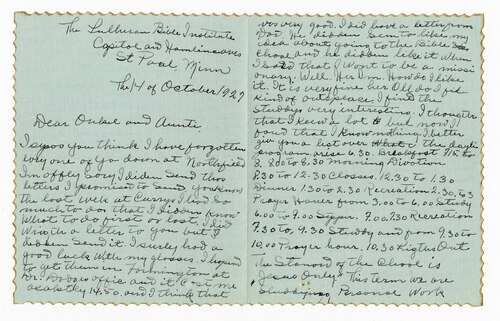 The Lutheran Bible Institute
Capitol and Hamline aves
St Paul Minn
The 14 of October 1929
Dear Onkel and Aunte.
I supos you think I have forgotten
evry one of yo down at Northfield
Im offly sory I diden Send thos
letters I promised to Send you know
the last week at Currys I had So
much to dor that I didden Know
What to do first or last. I did
Wright a letter to you but I
didden Send it I surly had a
good luck With my glosses. I haped
to get them in formington at
Dr. Dodges office and it cost me
14.50. and I think that
very good. I did have a letter from
Dot. He didden Sem to like my
idea about going to the Bible
choel and he didden like it When
I said that I Wont to be a missi
onary. Well Her Im. How do I like
it. It is very fine her All do I fid
kind of outoplace. I find the
studdys very interesting. I thought
that I knew a lot but now I
found that I know nothing. I better
give you a lest over the dayli
program arise 6.30. Breakfost 7.15. to
8. 8.00 to 8.30 morning Divotion.
8.30 to 12.30 Closses. 12.30 to 1.30
Dinner 1.30 to 2.30 Recreation 2.30 to 3
Prayer Houer from 3.00 to 6.00 Study
6.00 to 7.00 Supper. 7.00 7.30 Recreation
7.30 to 9.30 Studdy and from 9.30 to
10.00 Prayer hour. 10.30 Ligths Out
The Standard of the School is
"Jesus Only" This term we are
Studdying Personal Work